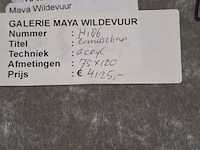 Maya Wildevuur
GALERIE MAYA WILDEVUUR
Nummer : H186
Titel : Landschap
Techniek : acryl
Afmetingen : 75x120
Prijs : € 4125,-